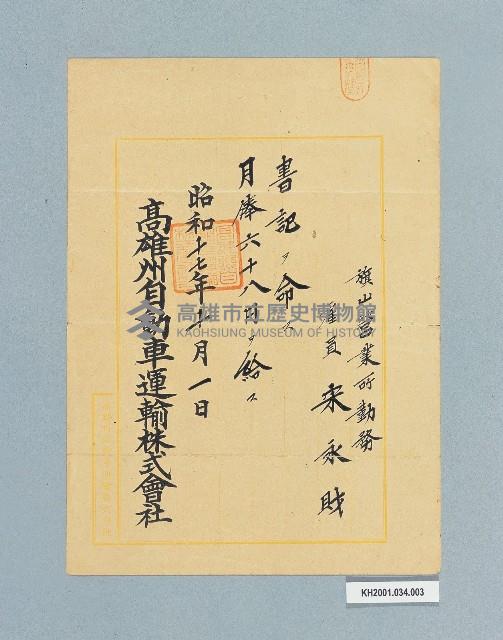 旗山營業所勤務
雇員 宋永財
書記ヲ命ス
月俸六十八円ヲ給ス
昭和十七年 月一日
高雄州自動車運輸株式會社
高雄市立歷史博物館
KAOHSIUNG MUSEUM OF HISTORY
KH2001.034.003